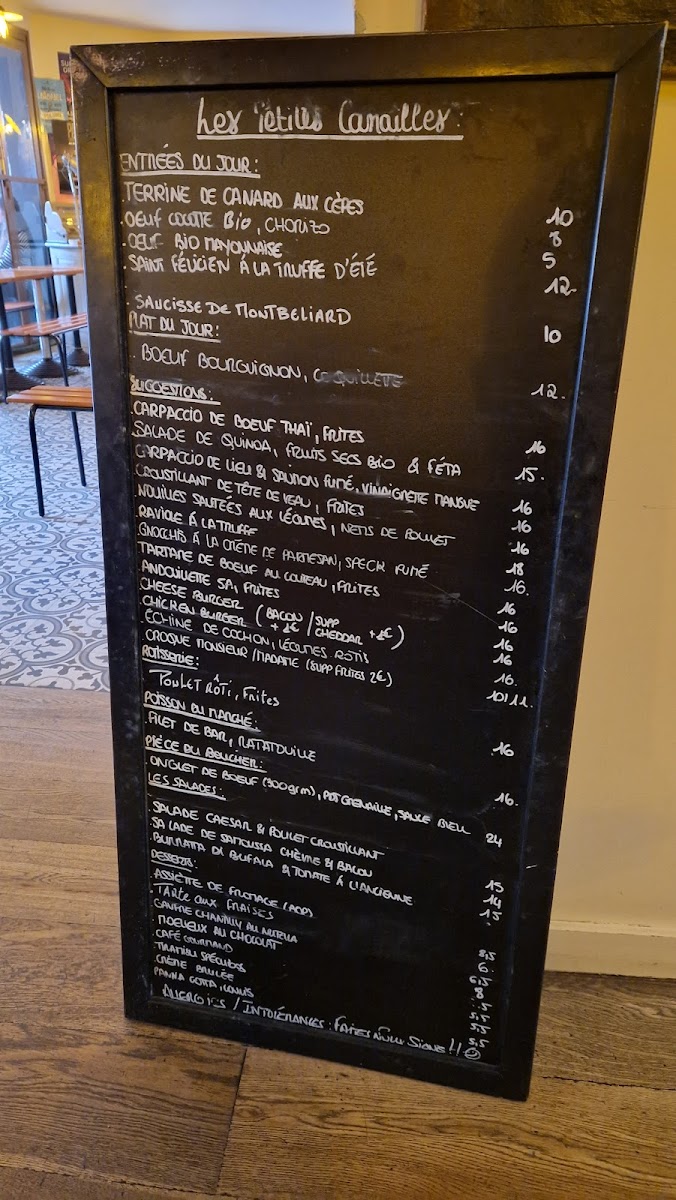 Les Petites Canailles:
ENTRÉES DU JOUR:
. TERRINE DE CANARD AUX CÈPES 10
. OEUF COCOTTE BIO, CHORIZO 8
. OEUF BIO MAYONNAISE 5
. SAINT FÉLICIEN À LA TRUFFE D'ÉTÉ 12.
. SAUCISSE DE MONTBELIARD 10
PLAT DU JOUR:
. BOEUF BOURGUIGNON, COQUILLETTE 12.
SUGGESTIONS:
. CARPACCIO DE BOEUF THAÏ, FRITES 16
. SALADE DE QUINOA, FRUITS SECS BIO & FÉTA 15.
. CARPACCIO DE LIEU & SAUMON FUMÉ, VINAIGRETE MANGUE 16
. CROUSTILLANT DE TÊTE DE VEAU, FRITES 16
. NOUILLES SAUTÉES AUX LÉGUMES, NEMS DE POULET 16
. RAVIOLE À LA TRUFFE 18
. GNOCCHIS À LA CRÈME DE PARMESAN, SPECK FUMÉ 16.
. TARTARE DE BOEUF AU COUTEAU, FRITES 16
. ANDOUILLETTE 5A, FRITES 16
. CHEESE BURGER (BACON + 1€ / SUPP CHEDDAR + 1€) 16
. CHICKEN BURGER 16
. ÉCHINE DE COCHON, LÉGUMES ROTIS 16.
. CROQUE MONSIEUR / MADAME (SUPP FRITES 2€) 10/11.
ROTISSERIE:
. POULET RÔTI, Frites 16
POISSON DU MARCHÉ:
. FILET DE BAR, RATATOUILLE 16.
PIÈCE DU BOUCHER:
. ONGLET DE BOEUF (300grm), PDT GRENAILLE, SAUCE BLEU 24
LES SALADES:
. SALADE CAESAR & POULET CROUSTILLANT 15
. SALADE DE SAMOUSSA CHÈVRE & BACON 14
. BURRATA DI BUFALA & TOMATE À L'ANCIENNE 15
DESSERTS:
. ASSIETTE DE FROMAGE (AOP) 8,5
. TARTE AUX FRAISES 6
. GAUFRE CHANTILLY AU NUTELLA 6,5
. MOELLEUX AU CHOCOLAT 8
. CAFÉ GOURMAND
. TIRAMISU SPÉCULOS 5,5
. CRÈME BRULÉE 5,5
. PANNA COTTA, COULIS 5,5
ALLERGIES / INTOLÉRANCES: FAITES NOUS SIGNE !!